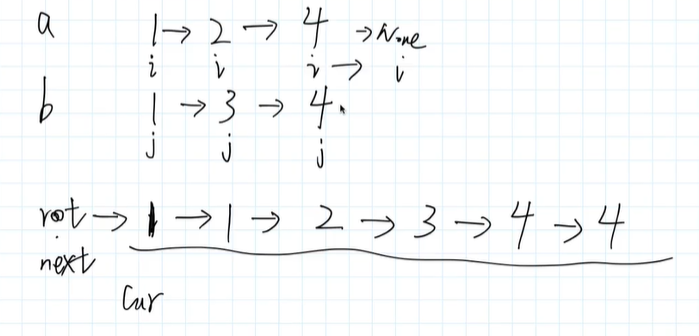 a 1 → 2 → 4 → None
i i i → i
b 1 → 3 → 4.
j j j
root → 1 → 1 → 2 → 3 → 4 → 4
next
Cur